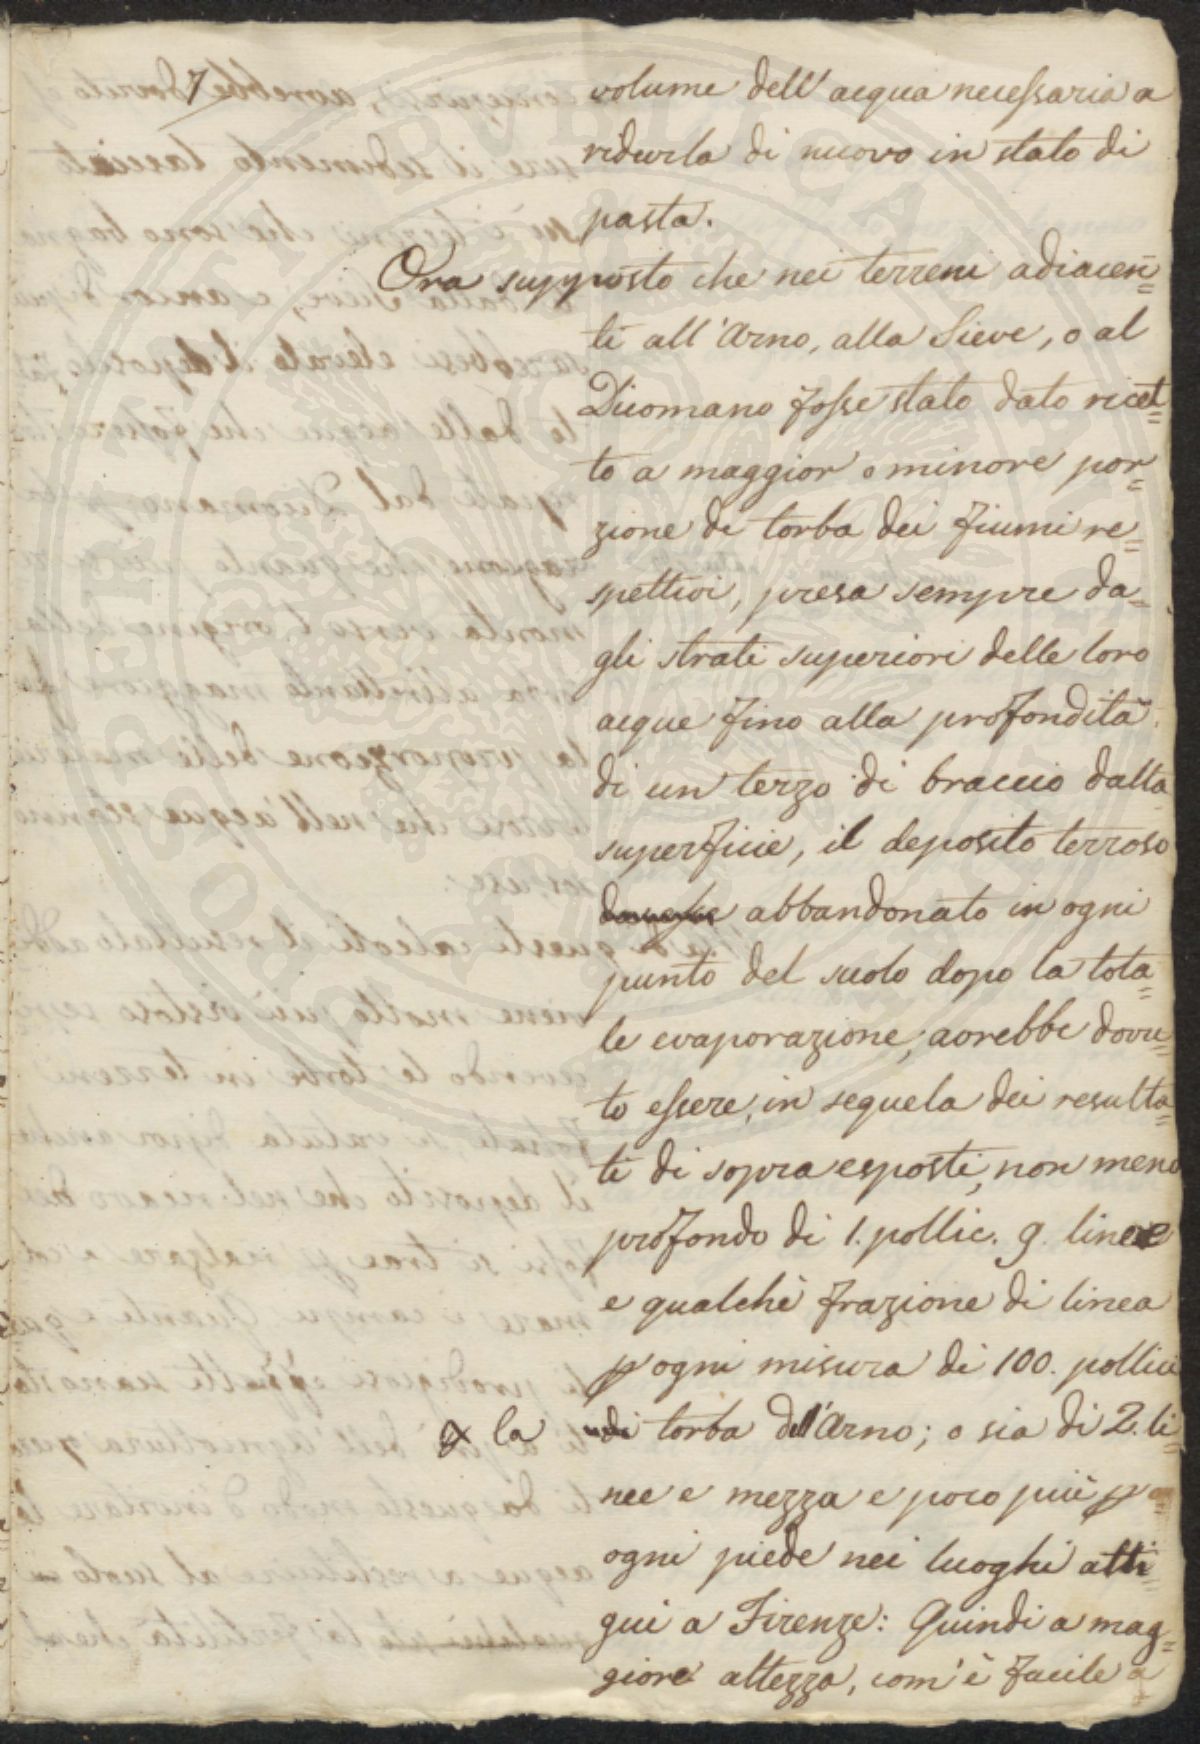 7
volume dell'acqua necessaria a
ridurla di nuovo in stato di
pasta.
Ora supposto che nei terreni adiacen=
ti all'Arno, alla Sieve, o al
Dicomano fosse stato dato ricet=
to a maggior o minore por=
zione di torba dei fiumi re=
spettivi, presa sempre da=
gli strati superiori delle loro
acque fino alla profondità
di un terzo di braccio dalla
superficie, il deposito terroso
abbandonato in ogni
punto del suolo dopo la tota=
le evaporazione, avrebbe dovu=
to essere, in sequela dei resulta=
ti di sopra esposti, non meno
profondo di 1. pollic. 9. linee
e qualche frazione di linea
p ogni misura di 100. pollici
la di torba dell'Arno; o sia di 2. li=
nee e mezza e poco più p
ogni piede nei luoghi atti=
gui a Firenze: Quindi a mag=
giore altezza, com'è facile a